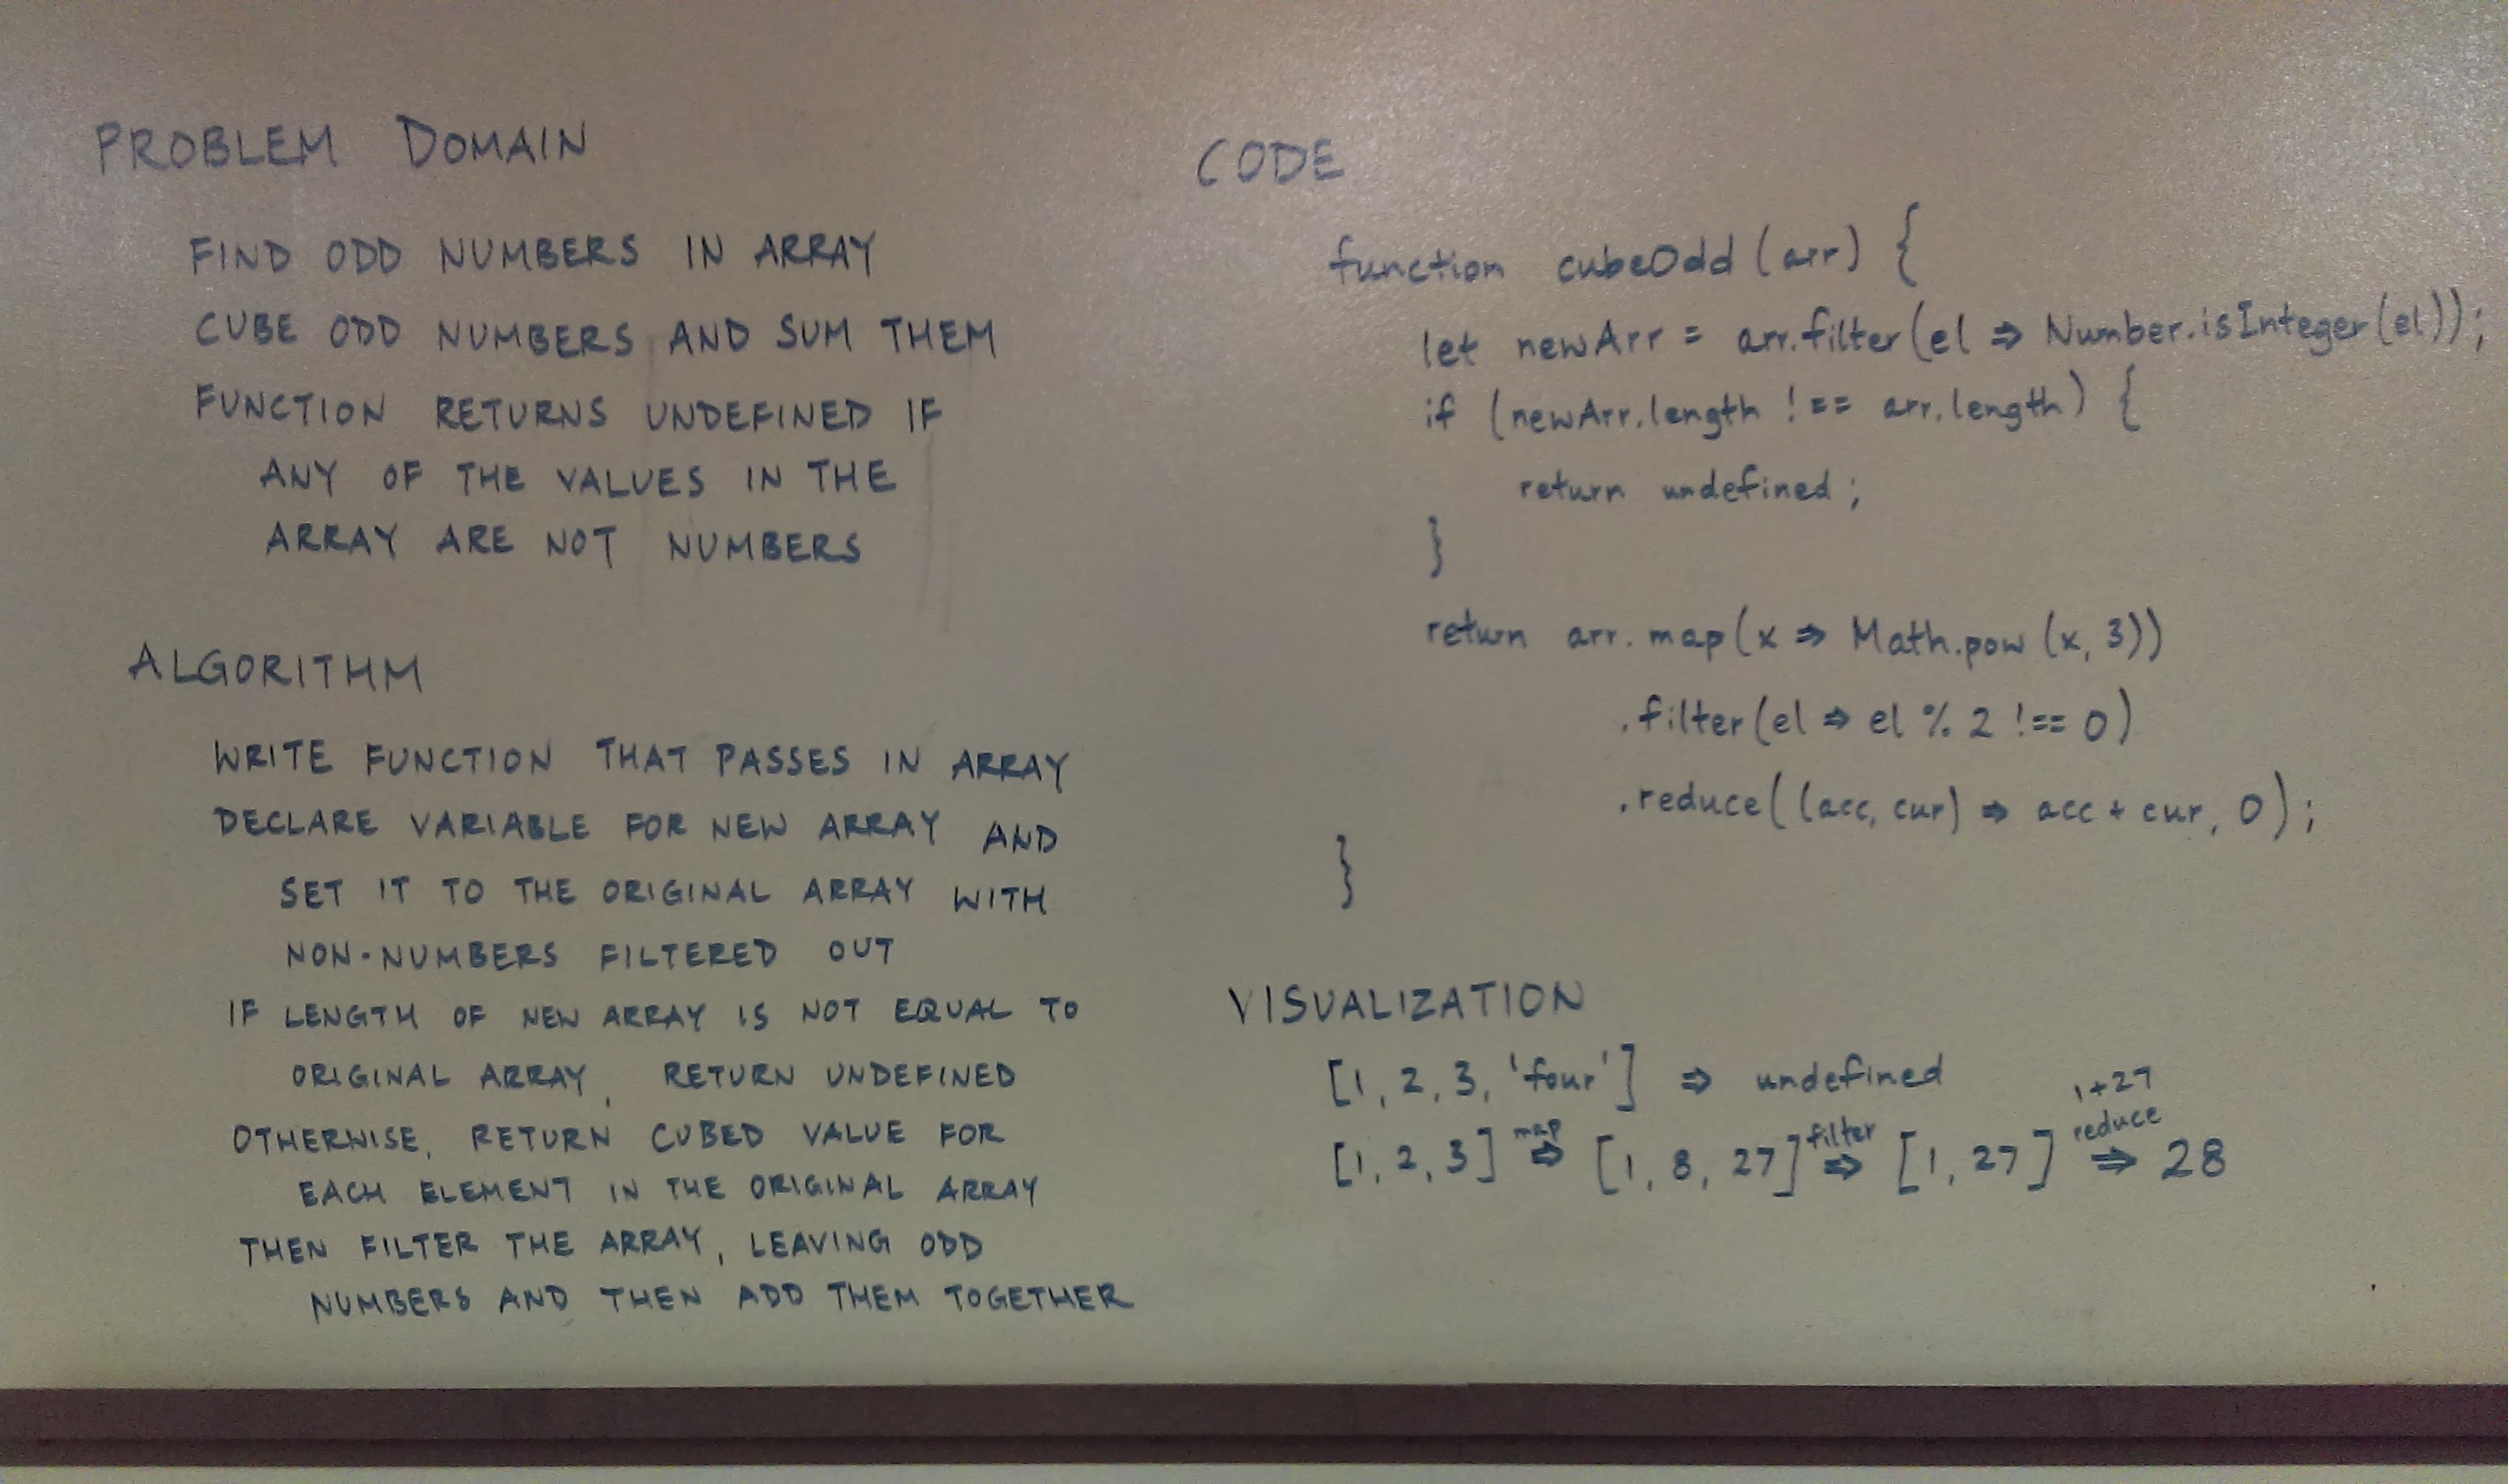 PROBLEM DOMAIN
FIND ODD NUMBERS IN ARRAY
CUBE ODD NUMBERS AND SUM THEM
FUNCTION RETURNS UNDEFINED IF
ANY OF THE VALUES IN THE
ARRAY ARE NOT NUMBERS
ALGORITHM
WRITE FUNCTION THAT PASSES IN ARRAY
DECLARE VARIABLE FOR NEW ARRAY AND
SET IT TO THE ORIGINAL ARRAY WITH
NON-NUMBERS FILTERED OUT
IF LENGTH OF NEW ARRAY IS NOT EQUAL TO
ORIGINAL ARRAY, RETURN UNDEFINED
OTHERWISE, RETURN CUBED VALUE FOR
EACH ELEMENT IN THE ORIGINAL ARRAY
THEN FILTER THE ARRAY, LEAVING ODD
NUMBERS AND THEN ADD THEM TOGETHER
CODE
function cubeOdd (arr) {
let newArr = arr.filter(el => Number.isInteger(el));
if (newArr.length !== arr.length) {
return undefined;
}
return arr.map(x => Math.pow(x, 3))
.filter(el => el % 2 !== 0)
.reduce((acc, cur) => acc + cur, 0);
}
VISUALIZATION
[1, 2, 3, 'four'] => undefined
1+27
map filter reduce
[1, 2, 3] => [1, 8, 27] => [1, 27] => 28